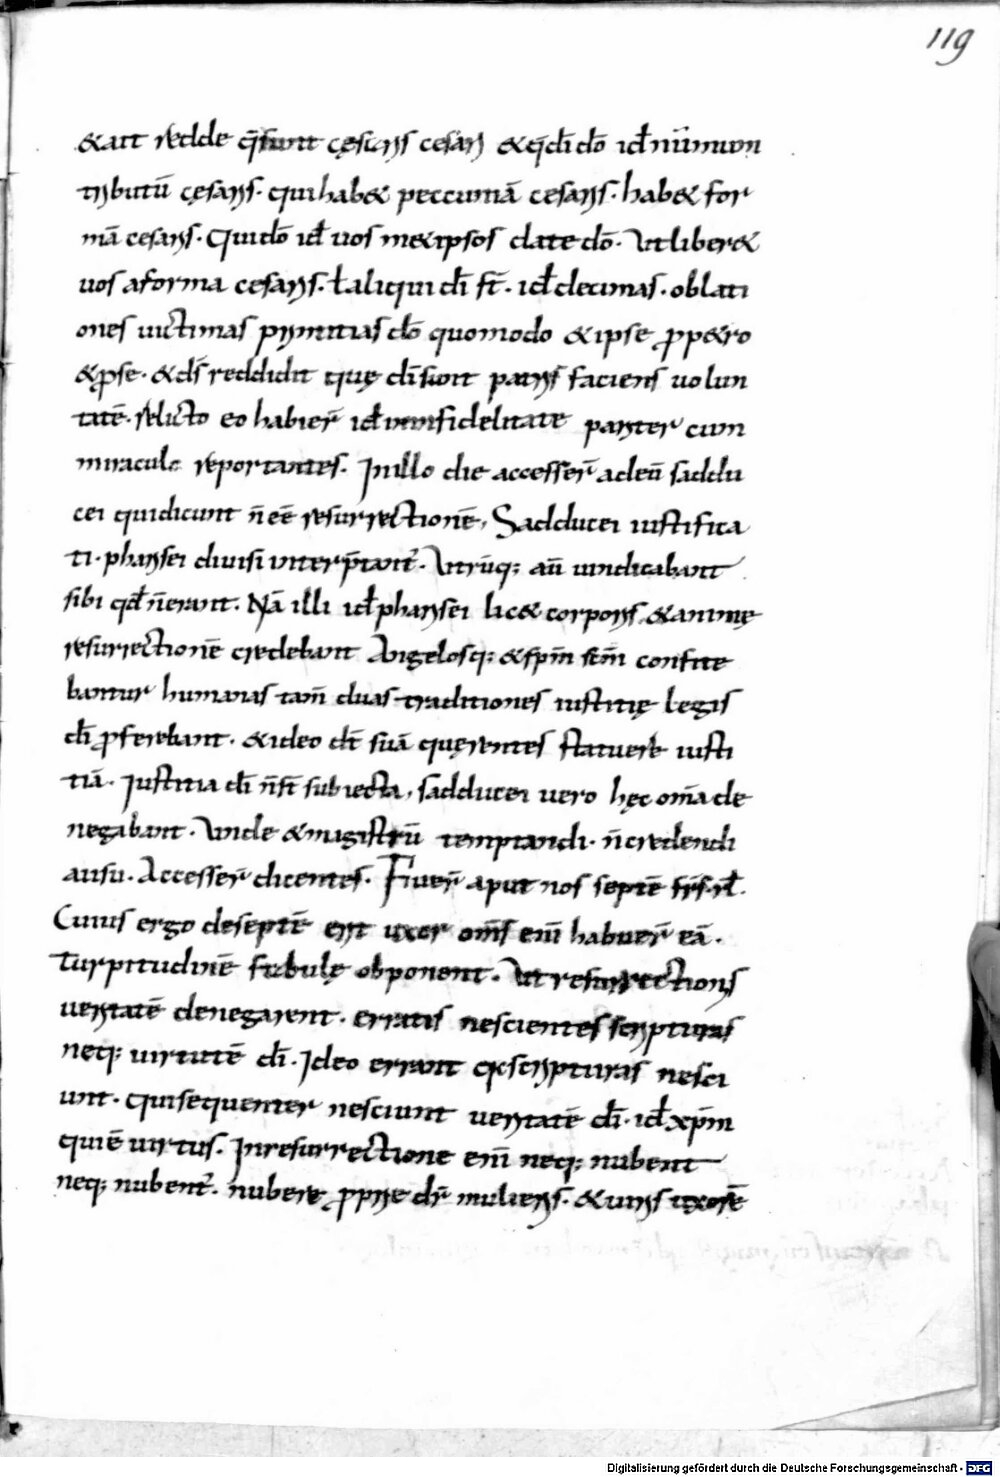 119
&ait redde q̄ sunt cęsaris cesari &q̄ di dō id nūmum
tributū cęsaris. qui hab& peccuniā cesaris. hab& for
mā cesaris. Qui dō id uos me&ipsos date dō. Ut liber&
uos a forma cesaris. ł aliqui di st̄. id decimas. oblati
ones uictimas primitias dō quomodo &ipse p p&ro
&pse. &ds reddidit quę di sunt patris faciens uolun
tatē. relicto eo habier̄ id in infidelitate pariter cum
miracula reportantes. In illo die accesser̄ ad eū saddu
cei qui dicunt n̄ eē resurrectionē, Sadducei iustifica
ti. pharisei diuisi interp̄tant̄. Utrūq; aū uindicabant
sibi qd n̄ erant. Nā illi id pharisei lic& corporis &animę
resurrectionē credebant Angelosq; &spm̄ scm̄ confite
bantur humanas tam̄ duas traditiones iustitię legis
di pferebant. &ideo dt̄ suā quęrentes statuere iusti
tiā. Iustitia di n̄ st̄ subiecta, sadducei uero hęc om̄a de
negabant. Unde &magistrū temptandi. n̄ credendi
ausu. Accesser̄ dicentes. Fuer̄ aput nos septē frs̄. rł.
Cuius ergo de septē erit uxor om̄s eni̅ habuer̄ eā.
Turpitudinē fabulę obponent. Ut resurrectionis
ueritatē denegarent. erratis nescientes scripturas
neq; uirtutē di. Ideo errant q scripturas nesci
unt. qui sequenter nesciunt ueritatē di. id xpm̄
qui ē uirtus. In resurrectione eni̅ neq; nubent
neq; nubent̄. nubere pprie dr̄ mulieris. &uiris uxorē
Digitalisierung gefördert durch die Deutsche Forschungsgemeinschaft - DFG